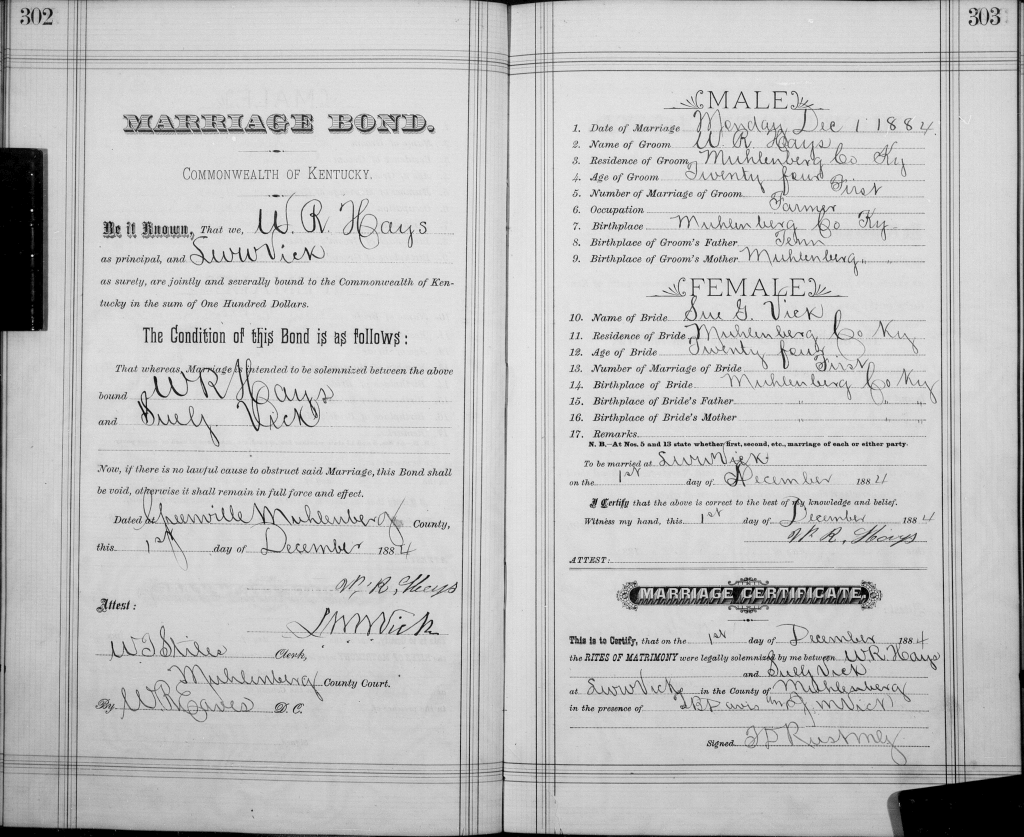 302
MARRIAGE BOND.
COMMONWEALTH OF KENTUCKY.
Be it Known, That we, W. R. Hays
as principal, and Vick
as surety, are jointly and severally bound to the Commonwealth of Ken-
tucky in the sum of One Hundred Dollars.
The Condition of this Bond is as follows:
That whereas, Marriage is intended to be solemnized between the above
bound W R Hays
and Sue G. Vick
Now, if there is no lawful cause to obstruct said Marriage, this Bond shall
be void, otherwise it shall remain in full force and effect.
Dated at Greenville Muhlenberg County,
this 1st day of December 1884
W. R. Hays
Attest:
Vick
Clerk,
Muhlenberg County Court.
By W R Eaves D. C.
303
MALE
1. Date of Marriage Monday Dec 1 1884.
2. Name of Groom W. R. Hays
3. Residence of Groom Muhlenberg Co Ky
4. Age of Groom Twenty four
5. Number of Marriage of Groom First
6. Occupation Farmer
7. Birthplace Muhlenberg Co Ky
8. Birthplace of Groom's Father Tenn
9. Birthplace of Groom's Mother Muhlenberg " "
FEMALE
10. Name of Bride Sue G. Vick
11. Residence of Bride Muhlenberg Co Ky
12. Age of Bride Twenty four
13. Number of Marriage of Bride First
14. Birthplace of Bride Muhlenberg Co Ky
15. Birthplace of Bride's Father " " "
16. Birthplace of Bride's Mother " " "
17. Remarks
N. B.—At Nos. 5 and 13 state whether first, second, etc., marriage of each or either party.
To be married at Vick
on the 1st day of December 1884
I Certify that the above is correct to the best of my knowledge and belief.
Witness my hand, this 1st day of December 1884
W. R. Hays
ATTEST:
MARRIAGE CERTIFICATE.
This is to Certify, that on the 1st day of December 1884
the RITES OF MATRIMONY were legally solemnized by me between W R Hays
and Sue G Vick
at Vick in the County of Muhlenberg
in the presence of Davis and J M Vick
Signed